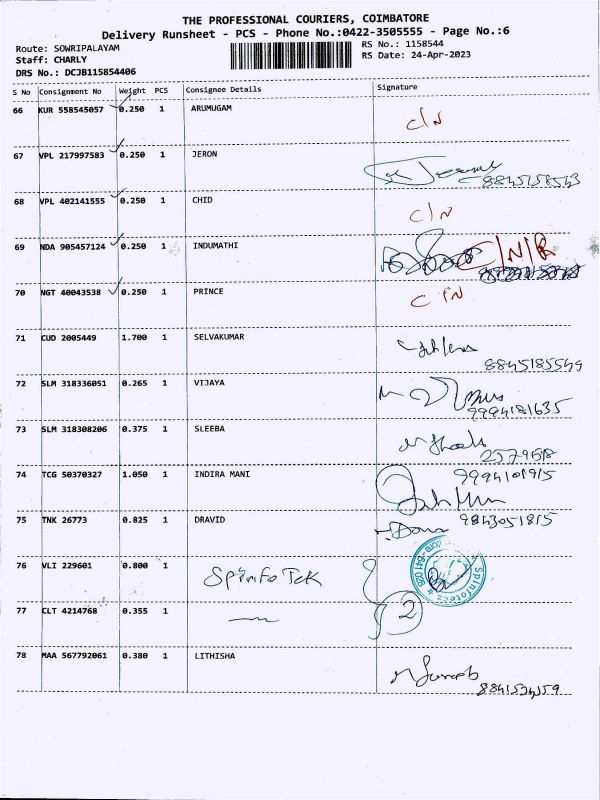 THE PROFESSIONAL COURIERS, COIMBATORE
Delivery Runsheet - PCS - Phone No.:0422-3505555 - Page No.:6
Route: SOWRIPALAYAM
RS No.: 1158544
Staff: CHARLY
RS Date: 24-Apr-2023
DRS No.: DCJB115854406
S No Consignment No Weight PCS Consignee Details Signature
66 KUR 558545057 0.250 1 ARUMUGAM
C/N
67 VPL 217997583 0.250 1 JERON
68 VPL 402141555 0.250 1 CHID
C/N
69 NDA 905457124 0.250 1 INDUMATHI
C/N/R
70 NGT 40043538 0.250 1 PRINCE
71 CUD 2005449 1.700 1 SELVAKUMAR
72 SLM 318336051 0.265 1 VIJAYA
9994181635
73 SLM 318308206 0.375 1 SLEEBA
74 TCG 50370327 1.050 1 INDIRA MANI
9994101915
75 TNK 26773 0.825 1 DRAVID
9843051815
76 VLI 229601 0.800 1 SpinfoTek
Spinfotecz
77 CLT 4214768 0.355 1 2
78 MAA 567792061 0.380 1 LITHISHA